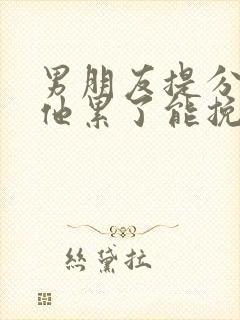 男朋友提分
他累了能挽
絲黛拉